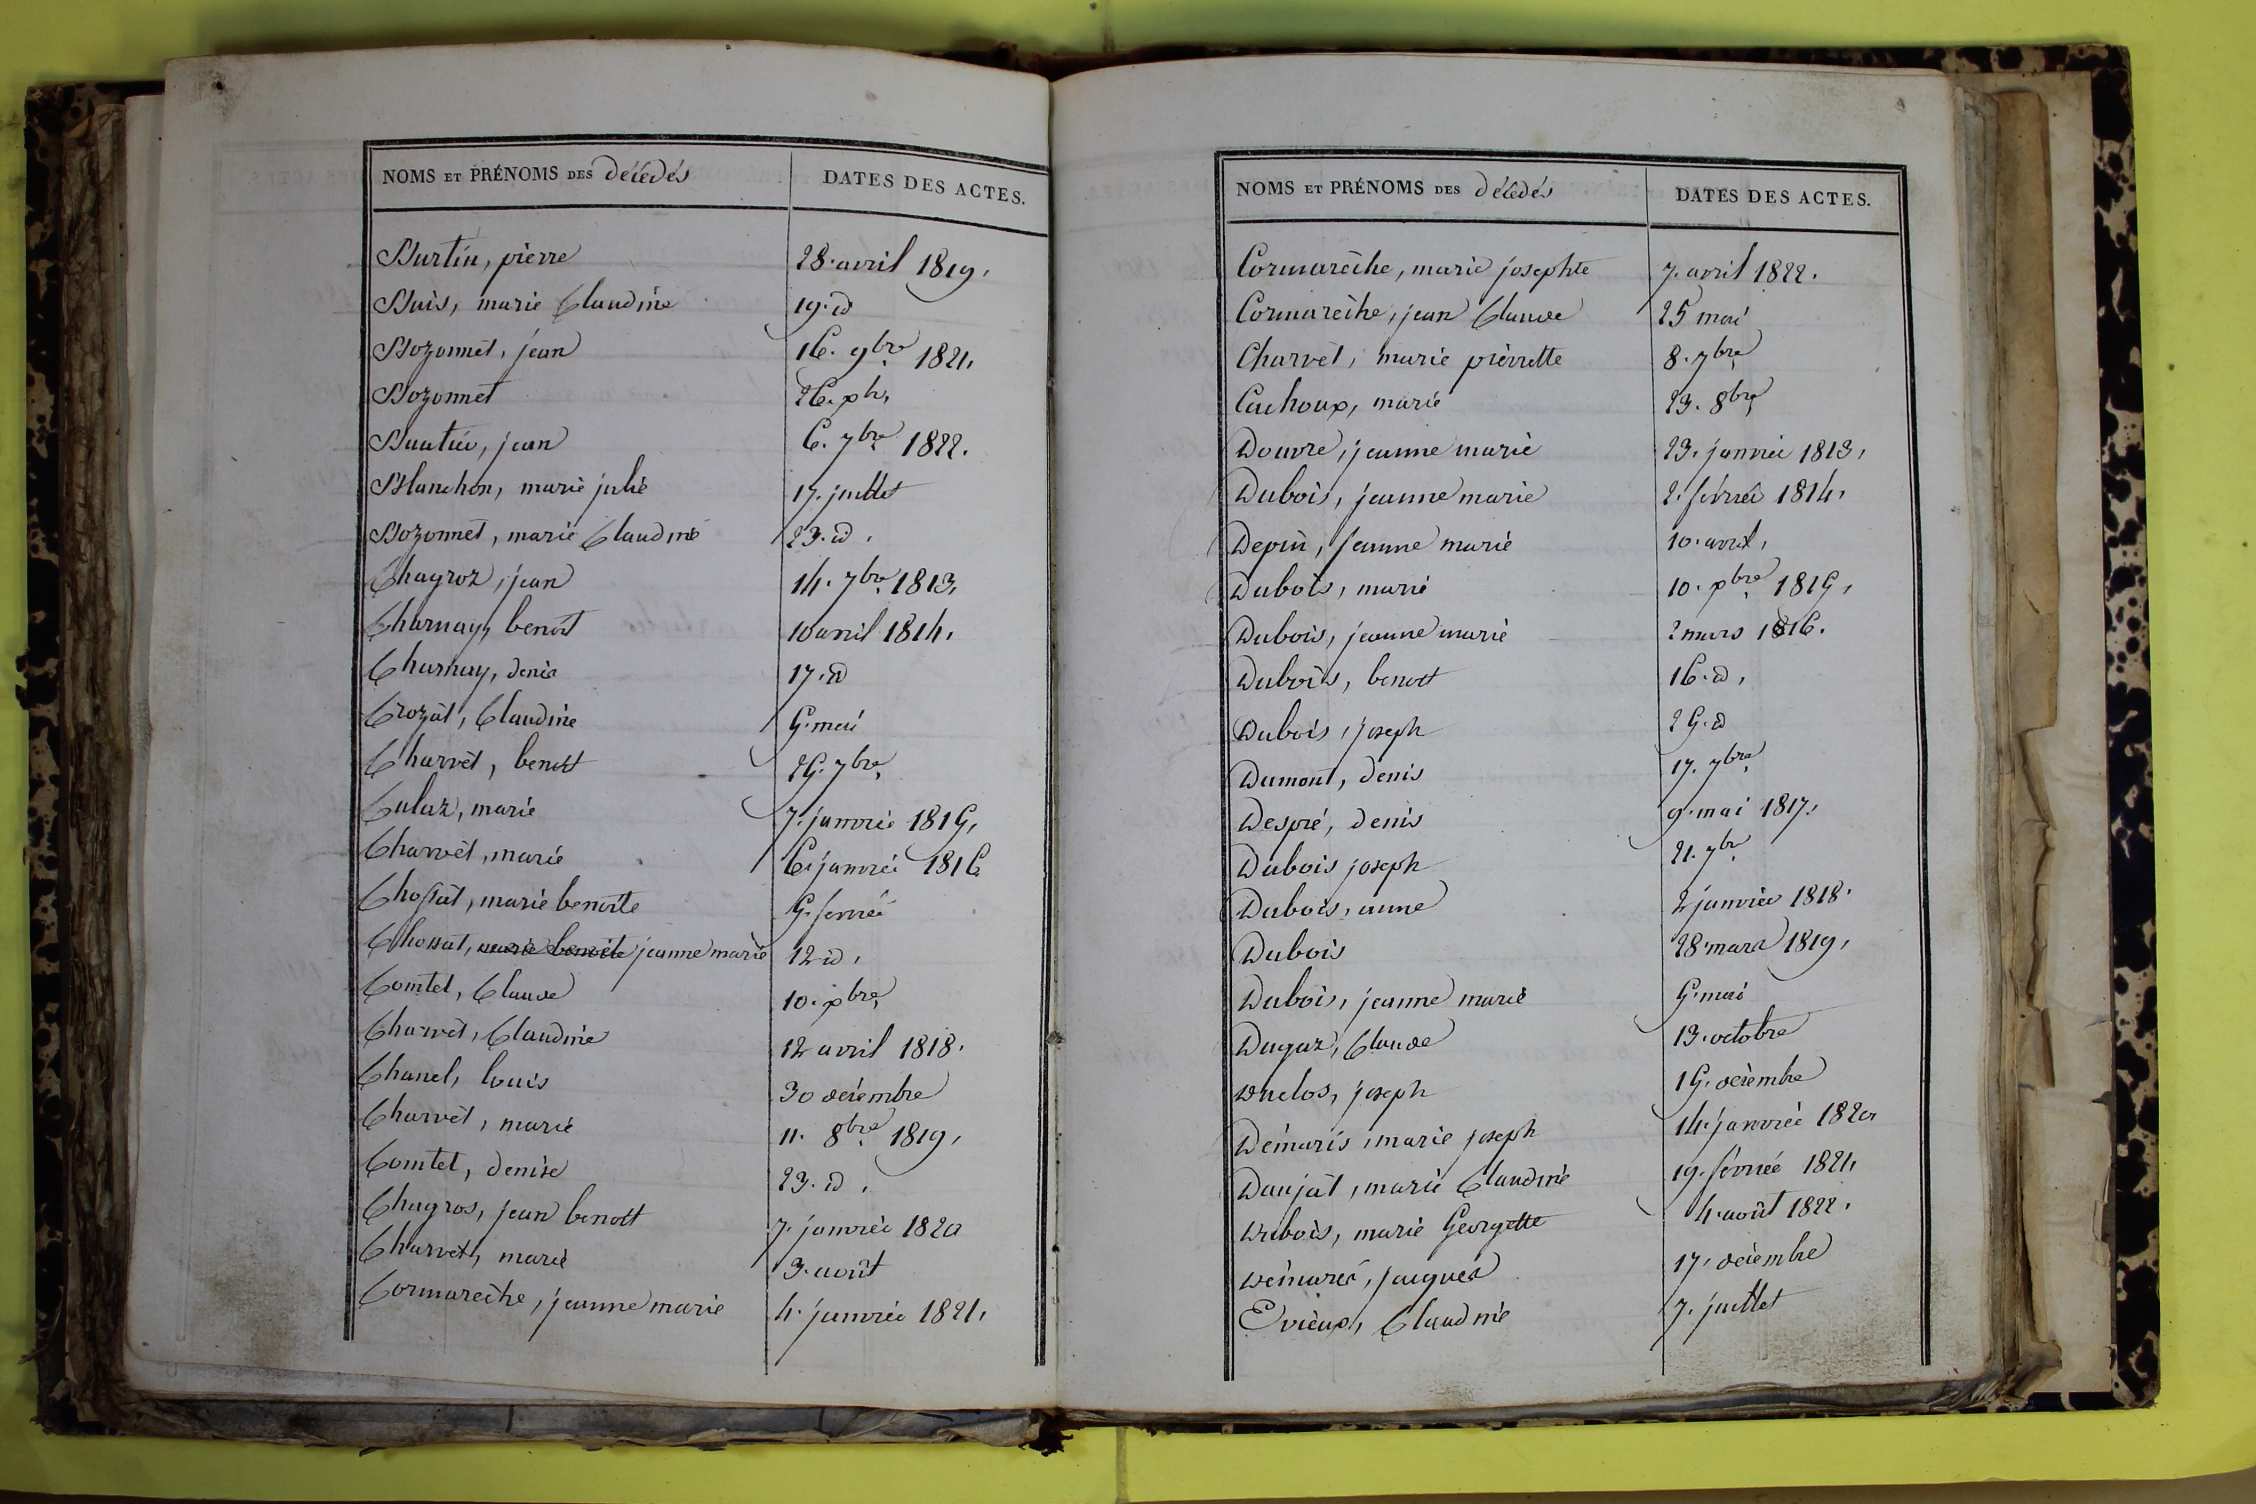 NOMS ET PRÉNOMS DES décédés | DATES DES ACTES.
Burtin, pierre | 28. avril 1819.
Buis, marie Claudine | 19. d
Bozonnet, jean | 16. 9bre 1821.
Bozonnet | 26. xbre
Buutier, jean | 6. 7bre 1822.
Blanchon, marie julie | 17. juillet
Bozonnet, marie Claudine | 23. d.
Chagroz, jean | 14. 7bre 1813.
Charnay, benoit | 10 avril 1814.
Charnay, denis | 17. d
Crozat, Claudine | 5. mai
Charvet, benoit | 25. 7bre
Culaz, marie | 7. janvier 1815.
Charvet, marie | 6. janvier 1816
Chossat, marie benoite | 5. fevrier
Chossat, marie benoite jeanne marie | 12 d.
Comtet, Claude | 10. xbre
Charvet, Claudine | 12 avril 1818.
Chanel, louis | 30 décembre
Charvet, marie | 11. 8bre 1819.
Comtet, denise | 23. d.
Chagros, jean benoit | 7. janvier 1820
Charvet, marie | 3. août
Cormarèche, jeanne marie | 4. janvier 1821.
NOMS ET PRÉNOMS DES décédés | DATES DES ACTES.
Cormarèche, marie josephte | 7. avril 1822.
Cormarèche, jean Claude | 25 mai
Charvet, marie pierrette | 8. 7bre
Cachoux, marie | 23. 8bre
Douvre, jeanne marie | 23. janvier 1813.
Dubois, jeanne marie | 2. février 1814.
Depin, jeanne marie | 10. avril.
Dubois, marie | 10. xbre 1815.
Dubois, jeanne marie | 2 mars 1816.
Dubois, benoit | 16. d.
Dubois, joseph | 25. d
Dumont, denis | 17. 7bre
Despré, denis | 9. mai 1817.
Dubois joseph | 21. 7bre
Dubois, anne | 2 janvier 1818.
Dubois | 28. mars 1819.
Dubois, jeanne marie | 5. mai
Dugaz, Claude | 13. octobre
Duclos, joseph | 15. décembre
Démaris, marie joseph | 14. janvier 1820
Daujat, marie Claudine | 19. février 1821.
Dubois, marie Georgette | 4. août 1822.
Démaris, jacques | 17. décembre
Evieux, Claudine | 7. juillet